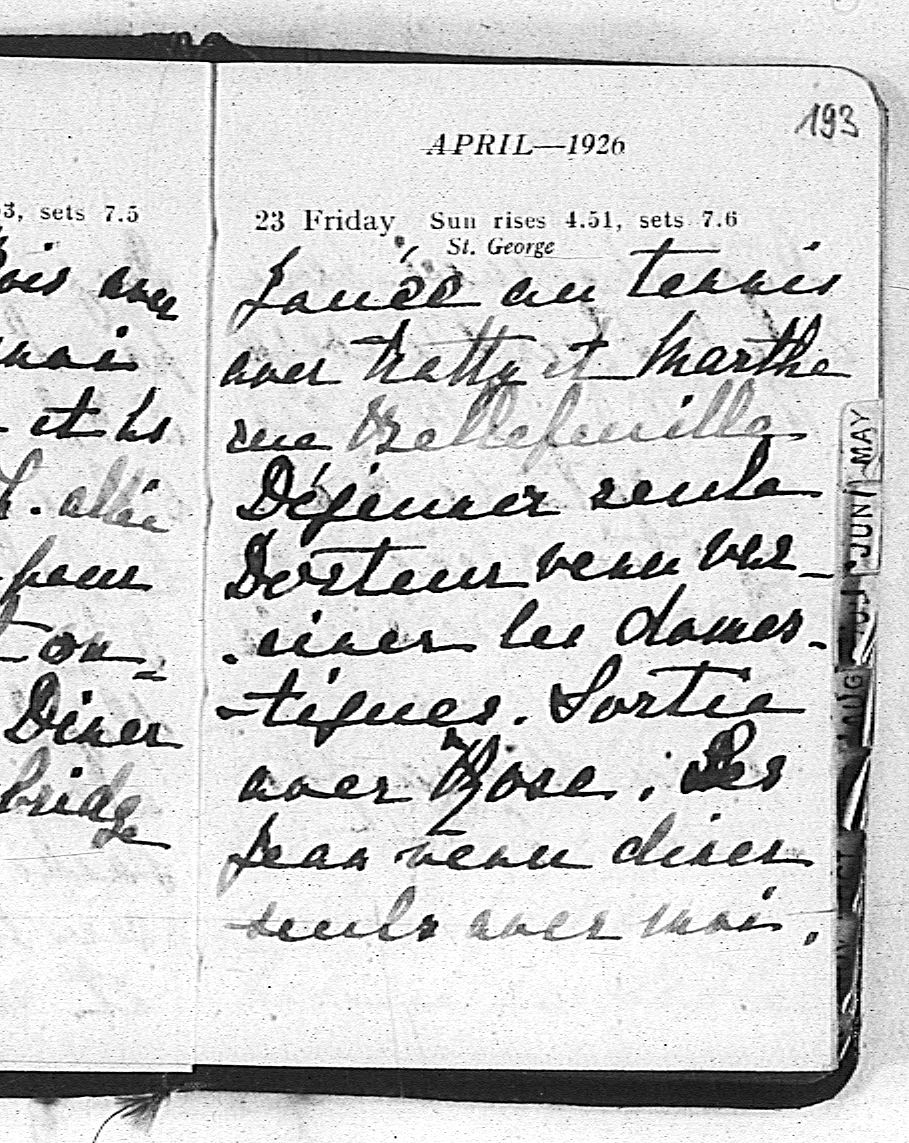 193
APRIL—1926
3, sets 7.5
23 Friday Sun rises 4.51, sets 7.6
St. George
Jouée au tennis
avec Katty et Marthe
rue Bellefeuille
Déjeuner seule
Docteur venu vac-
-ciner les domes-
-tiques. Sortie
avec Rose. Les
Jean venu diner
seuls avec moi.
et les
. allée
pour
on
Diner
bridge
MAY
JUN
AUG